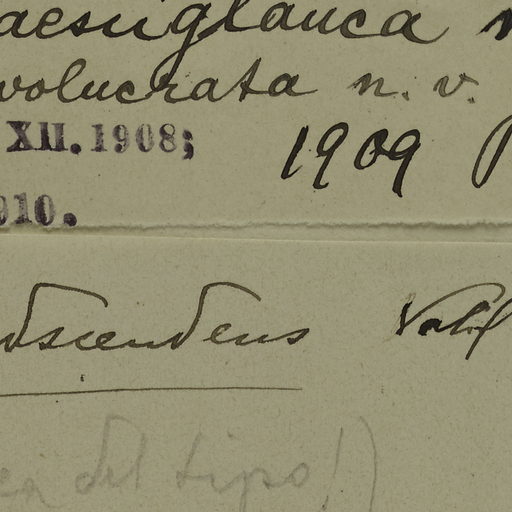 aesiiglauca
volucrata n. v.
XII. 1908; 1909
910.
dscendens Vahl
ea del tipo!)